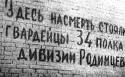 ЗДЕСЬ НАСМЕРТЬ СТОЯЛИ
ГВАРДЕЙЦЫ 34 ПОЛКА
ДИВИЗИИ РОДИМЦЕВА